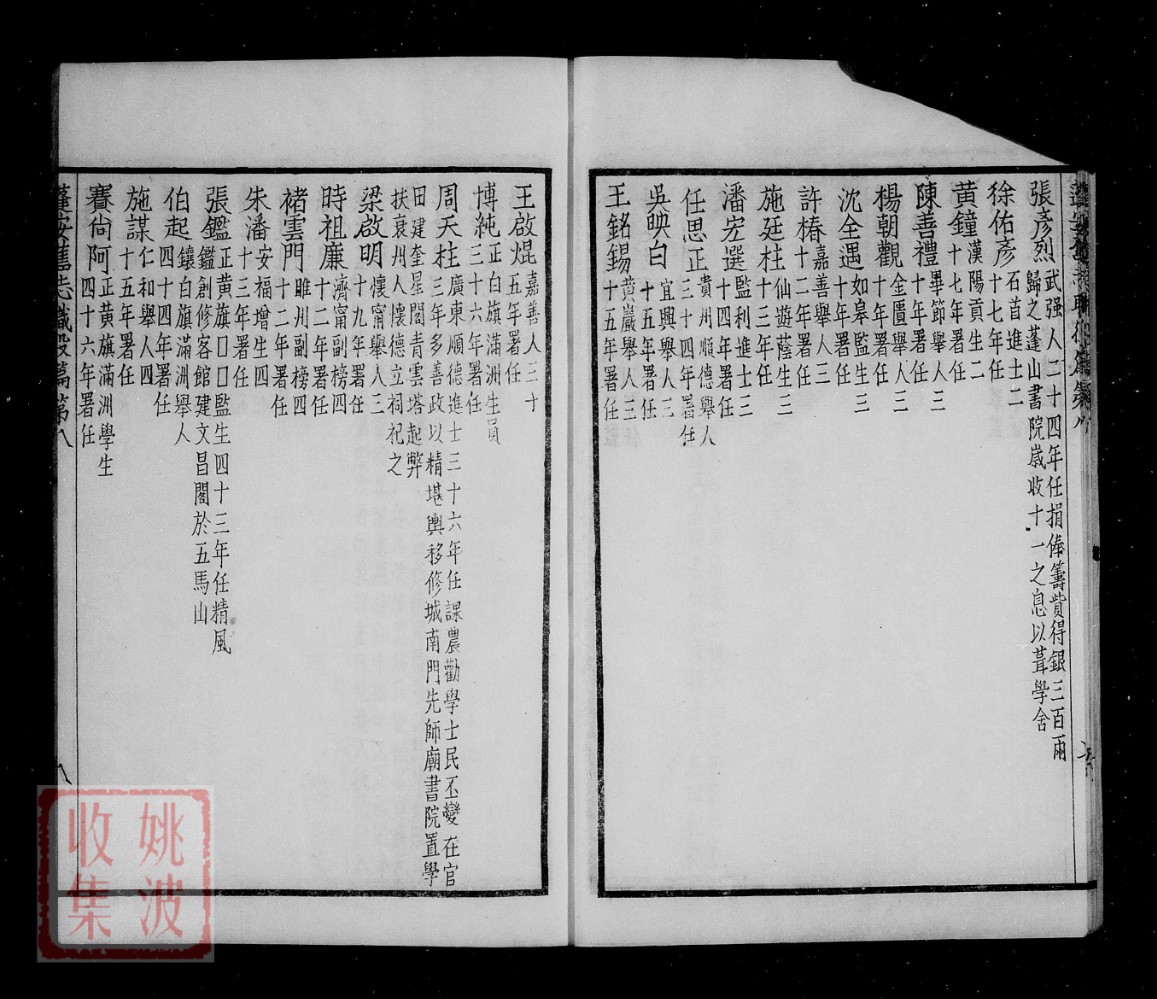 張彥烈武强人二十四年任捐俸籌貲得銀三百兩
歸之蓬山書院歲收十一之息以葺學舍
徐佑彥石首進士二
十七年任
黃鐘漢陽貢生二
十七年署任
陳善禮畢節舉人三
十年署任
楊朝觀金匱舉人三
十年署任
沈全遇如皋監生三
十年署任
許椿嘉善舉人三
十二年署任
施廷柱仙遊蔭生三
十二年署任
潘宏選監利進士三
十四年署任
任思正貴州順德舉人
三十四年署任
吳映白宜興舉人三
十五年署任
王銘錫黃巖舉人三
十五年署任
王啟焜嘉善人三十
五年署任
博純正白旗滿洲生員
三十六年署任
周天柱廣東順德進士三十六年任課農勸學士民丕變在官
三年多善政以精堪輿移修城南門先師廟書院置學
田建奎星閣青雲塔起弊
扶衰州人懷德立祠祀之
梁啟明懷甯舉人三
十九年署任
時祖廉濟甯副榜四
十二年署任
褚雲門睢州副榜四
十二年署任
朱潘安福增生四
十三年署任
張鑑正黃旗口口監生四十三年任精風
鑑創修客館建文昌閣於五馬山
伯起鑲白旗滿洲舉人
四十四年署任
施謀仁和舉人四
十五年署任
賽尚阿正黃旗滿洲學生
四十六年署任
蓬安舊志職官篇第八
八
姚波
收集